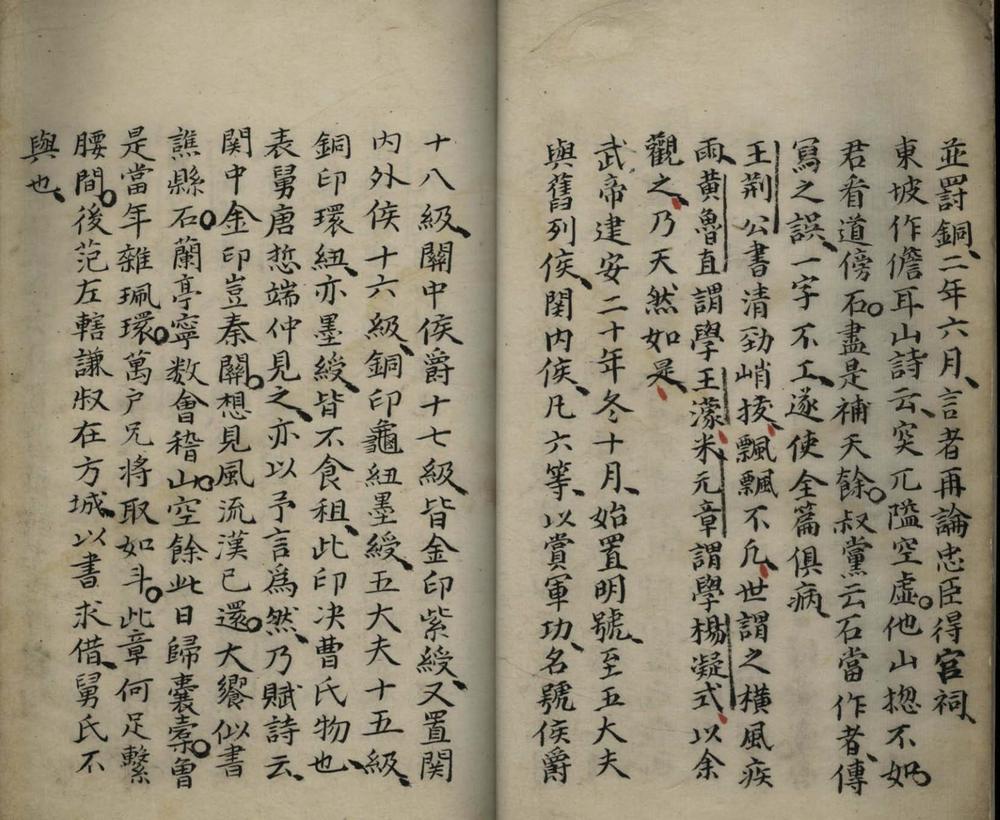 並罸銅二年六月言者再論忠臣得宮祠
東坡作儋耳山詩云突兀隘空虛他山揔不如
君看道傍石盡是補天餘叔黨云石當作者傳
寫之誤一字不工遂使全篇俱病
王荆公書清勁峭㧞飄飄不凡世謂之橫風疾
雨黄魯直謂學王濛米元章謂學楊凝式以余
觀之乃天然如是
武帝建安二十年冬十月始置明號至五大夫
與舊列侯関内侯凡六等以賞軍功名號侯爵
十八級關中侯爵十七級皆金印紫綬又置関
内外侯十六級銅印龜紐墨綬五大夫十五級
銅印環紐亦墨綬皆不食租此印决曹氏物也
表舅唐悊端仲見之亦以予言爲然乃賦詩云
関中金印豈秦關想見風流漢已還大饗似書
譙縣石蘭亭寧数會稽山空餘此日歸囊橐曾
是當年雜珮環萬户兄將取如斗此章何足繫
腰間後范左轄謙叔在方城以書求借舅氏不
與也